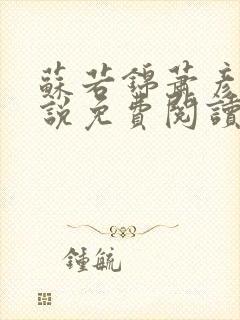 蘇若錦蕭彥
說免費閱讀
鍾毓